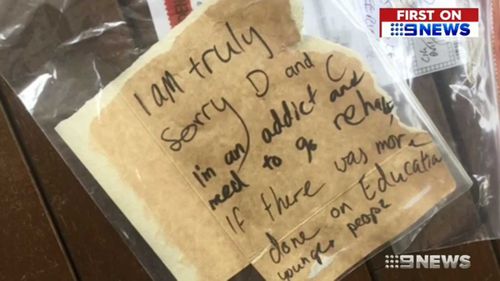 FIRST ON
9NEWS
I am truly
sorry D and C
I'm an addict and
need to go rehab
If there was more
done on Education
younger people
9NEWS